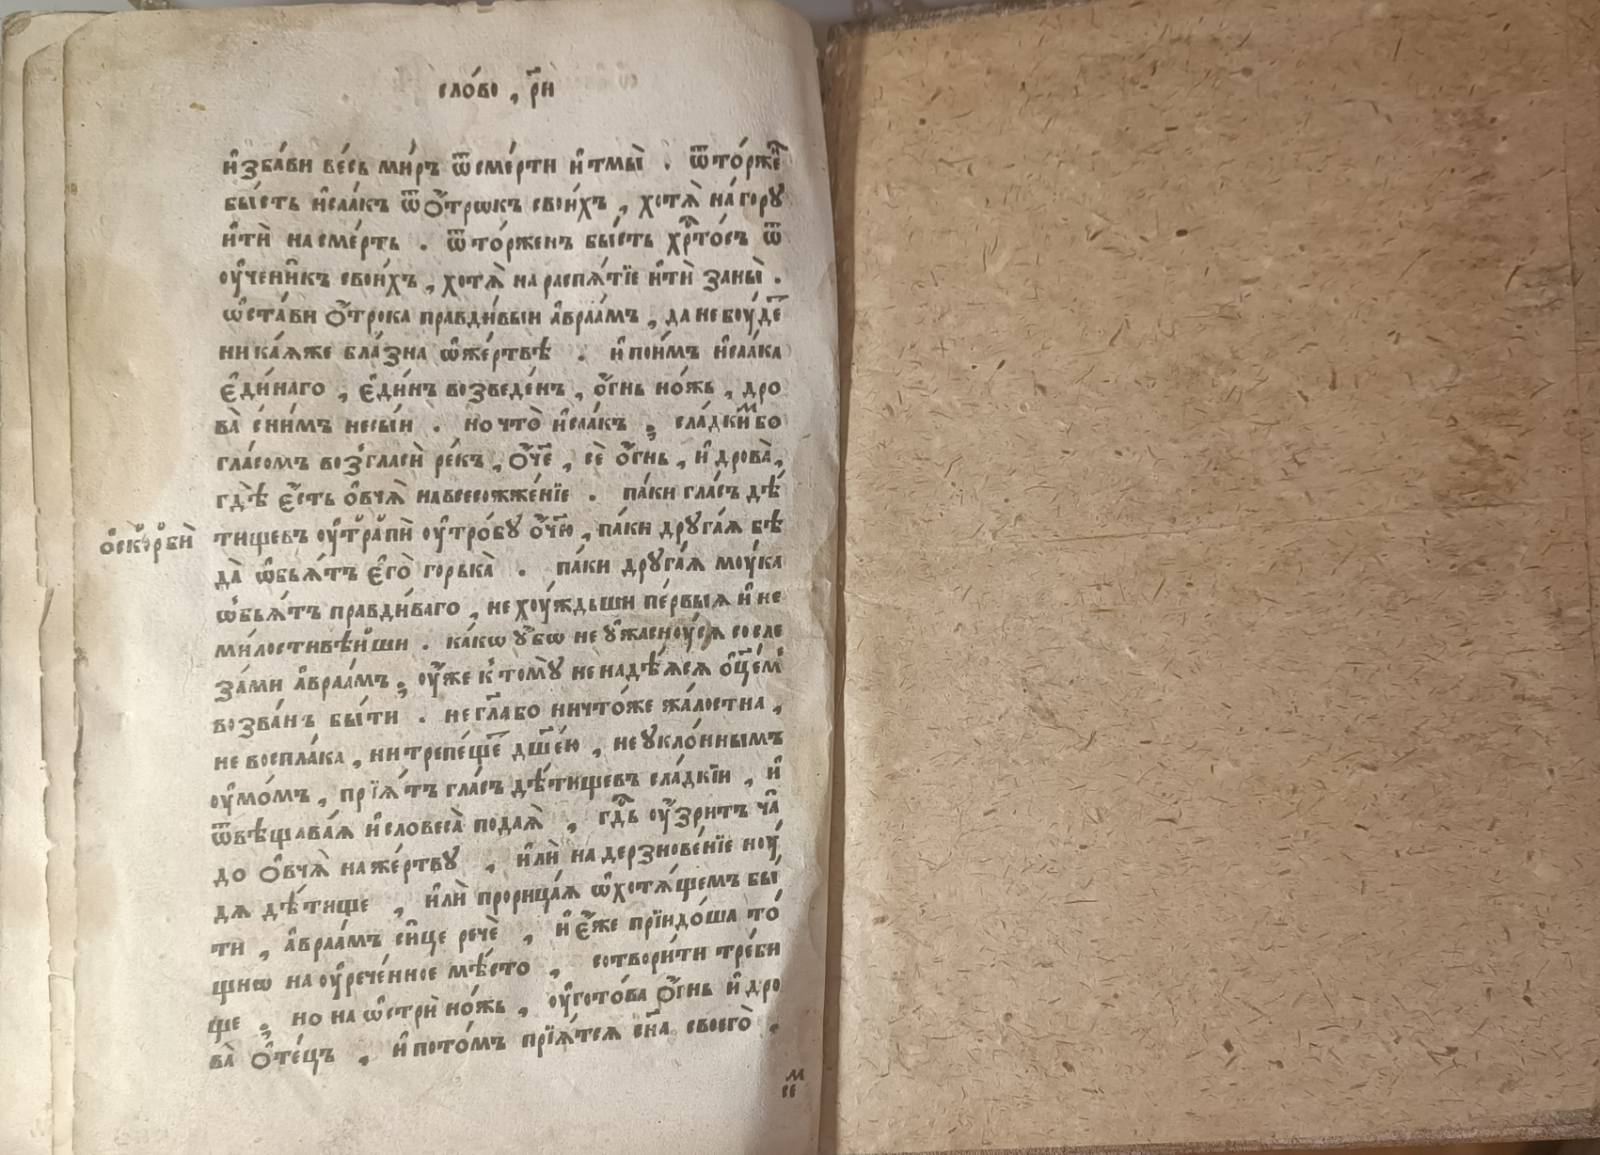 сло́во , р҃и
и҆зба́ви ве́сь ми́ръ ѿ сме́рти и҆ тмы̀ . ѿто́рже
бы́сть и҆саа́къ ѿ ѻ҆́трѡкъ свои́хъ , хотѧ̀ на́ гору
и҆тѝ на сме́рть . ѿто́рженъ бы́сть хрⷭ҇то́съ ѿ
оу҆чени̑къ свои́хъ , хотѧ̀ на распѧ́тїе и҆тѝ за ны̀ .
ѡ҆ста́ви ѻ҆́трока правди́выи а҆враа́мъ , да не боу́де
ни каѧ́же бла́зна ѡ҆ же́ртвѣ . и҆ пои́мъ и҆саа́ка
є҆ди́наго , є҆ди́нъ возведе́нъ , ѻ҆́гнь но́жь , дро
ва̀ с ни́мъ несы́и . но что̀ и҆саа́къ ; сла́дкиⷨ бо
гла́сомъ возгласѝ ре́къ , ѻ҆́ч҃е , сѐ ѻ҆́гнь , и҆ дрова̀ ,
гдѣ̀ є҆́сть ѻ҆вчѧ̀ на всесожже́нїе . па́ки гла́съ дѣ́
ѻ҆скорбѝ
тищевъ оу҆трапѝ оу҆тро́бу ѻ҆́ч҃ю , па́ки друга́ѧ бѣ
да̀ ѡ҆бьѧ́тъ є҆го̀ горька̀ . па́ки друга́ѧ моу́ка
ѡ҆бьѧ́тъ правди́ваго , не хоу́ждьши пе́рвыѧ и҆ не
ми́лостивѣ́иши . ка́кѡ ѹ҆́бѡ не ѹ҆жасноу́сѧ со сле
за́ми а҆враа́мъ ; оу҆́же к томѹ̀ не надѣ́ѧсѧ ѻ҆ц҃е́мъ
возва́нъ бы́ти . не гл҃а бо ничто́же жа́лостна ,
не воспла́ка , ни трепе́ще дш҃е́ю , неукло́ннымъ
оу҆мо́мъ , прїѧ́тъ гла́съ дѣ́тищевъ сла́дкїи , и҆
ѿвѣщава́ѧ и҆ словеса̀ подаѧ̀ , гдⷭ҇ь оу҆́зритъ ча҆
до ѻ҆вчѧ̀ на же́ртву , и҆лѝ на дерзнове́нїе ноу́
дѧ дѣ́тище , и҆лѝ прорица́ѧ ѡ҆ хотѧ́щемъ бы́
ти , а҆враа́мъ си́це речѐ , и҆ є҆́же прїидо́ша то́
щнѡ на оу҆рече́нное мѣ́сто , сотвори́ти тре́би
ще ; но на ѡ҆стрѝ но́жь , оу҆гото́ва ѻ҆́гнь и҆ дро
ва̀ ѻ҆те́цъ , и҆ пото́мъ прїѧ́тсѧ сн҃а своего̀ ,
сеⷨ